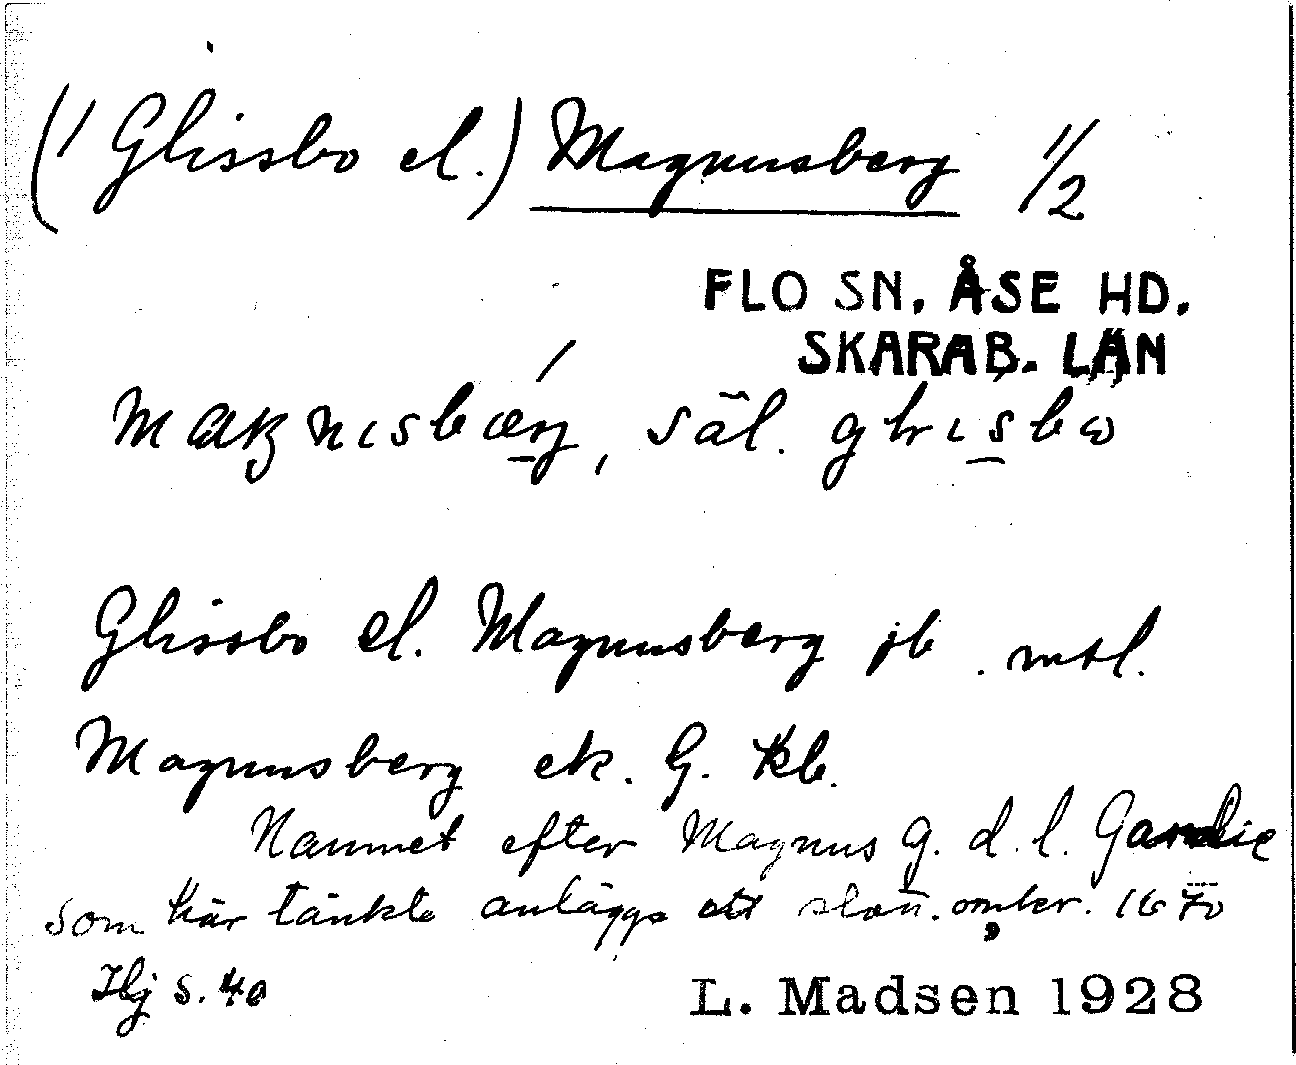 (' Glissbo el.) Magnusberg 1/2
FLO SN. ÅSE HD.
SKARAB. LÄN
säl.
Glissbo el. Magnusberg jb . mtl.
Magnusberg ek. G. Kb.
Namnet efter Magnus G. d. l. Gardie
som här tänkte anlägga ett 1670
s. 40
L. Madsen 1928